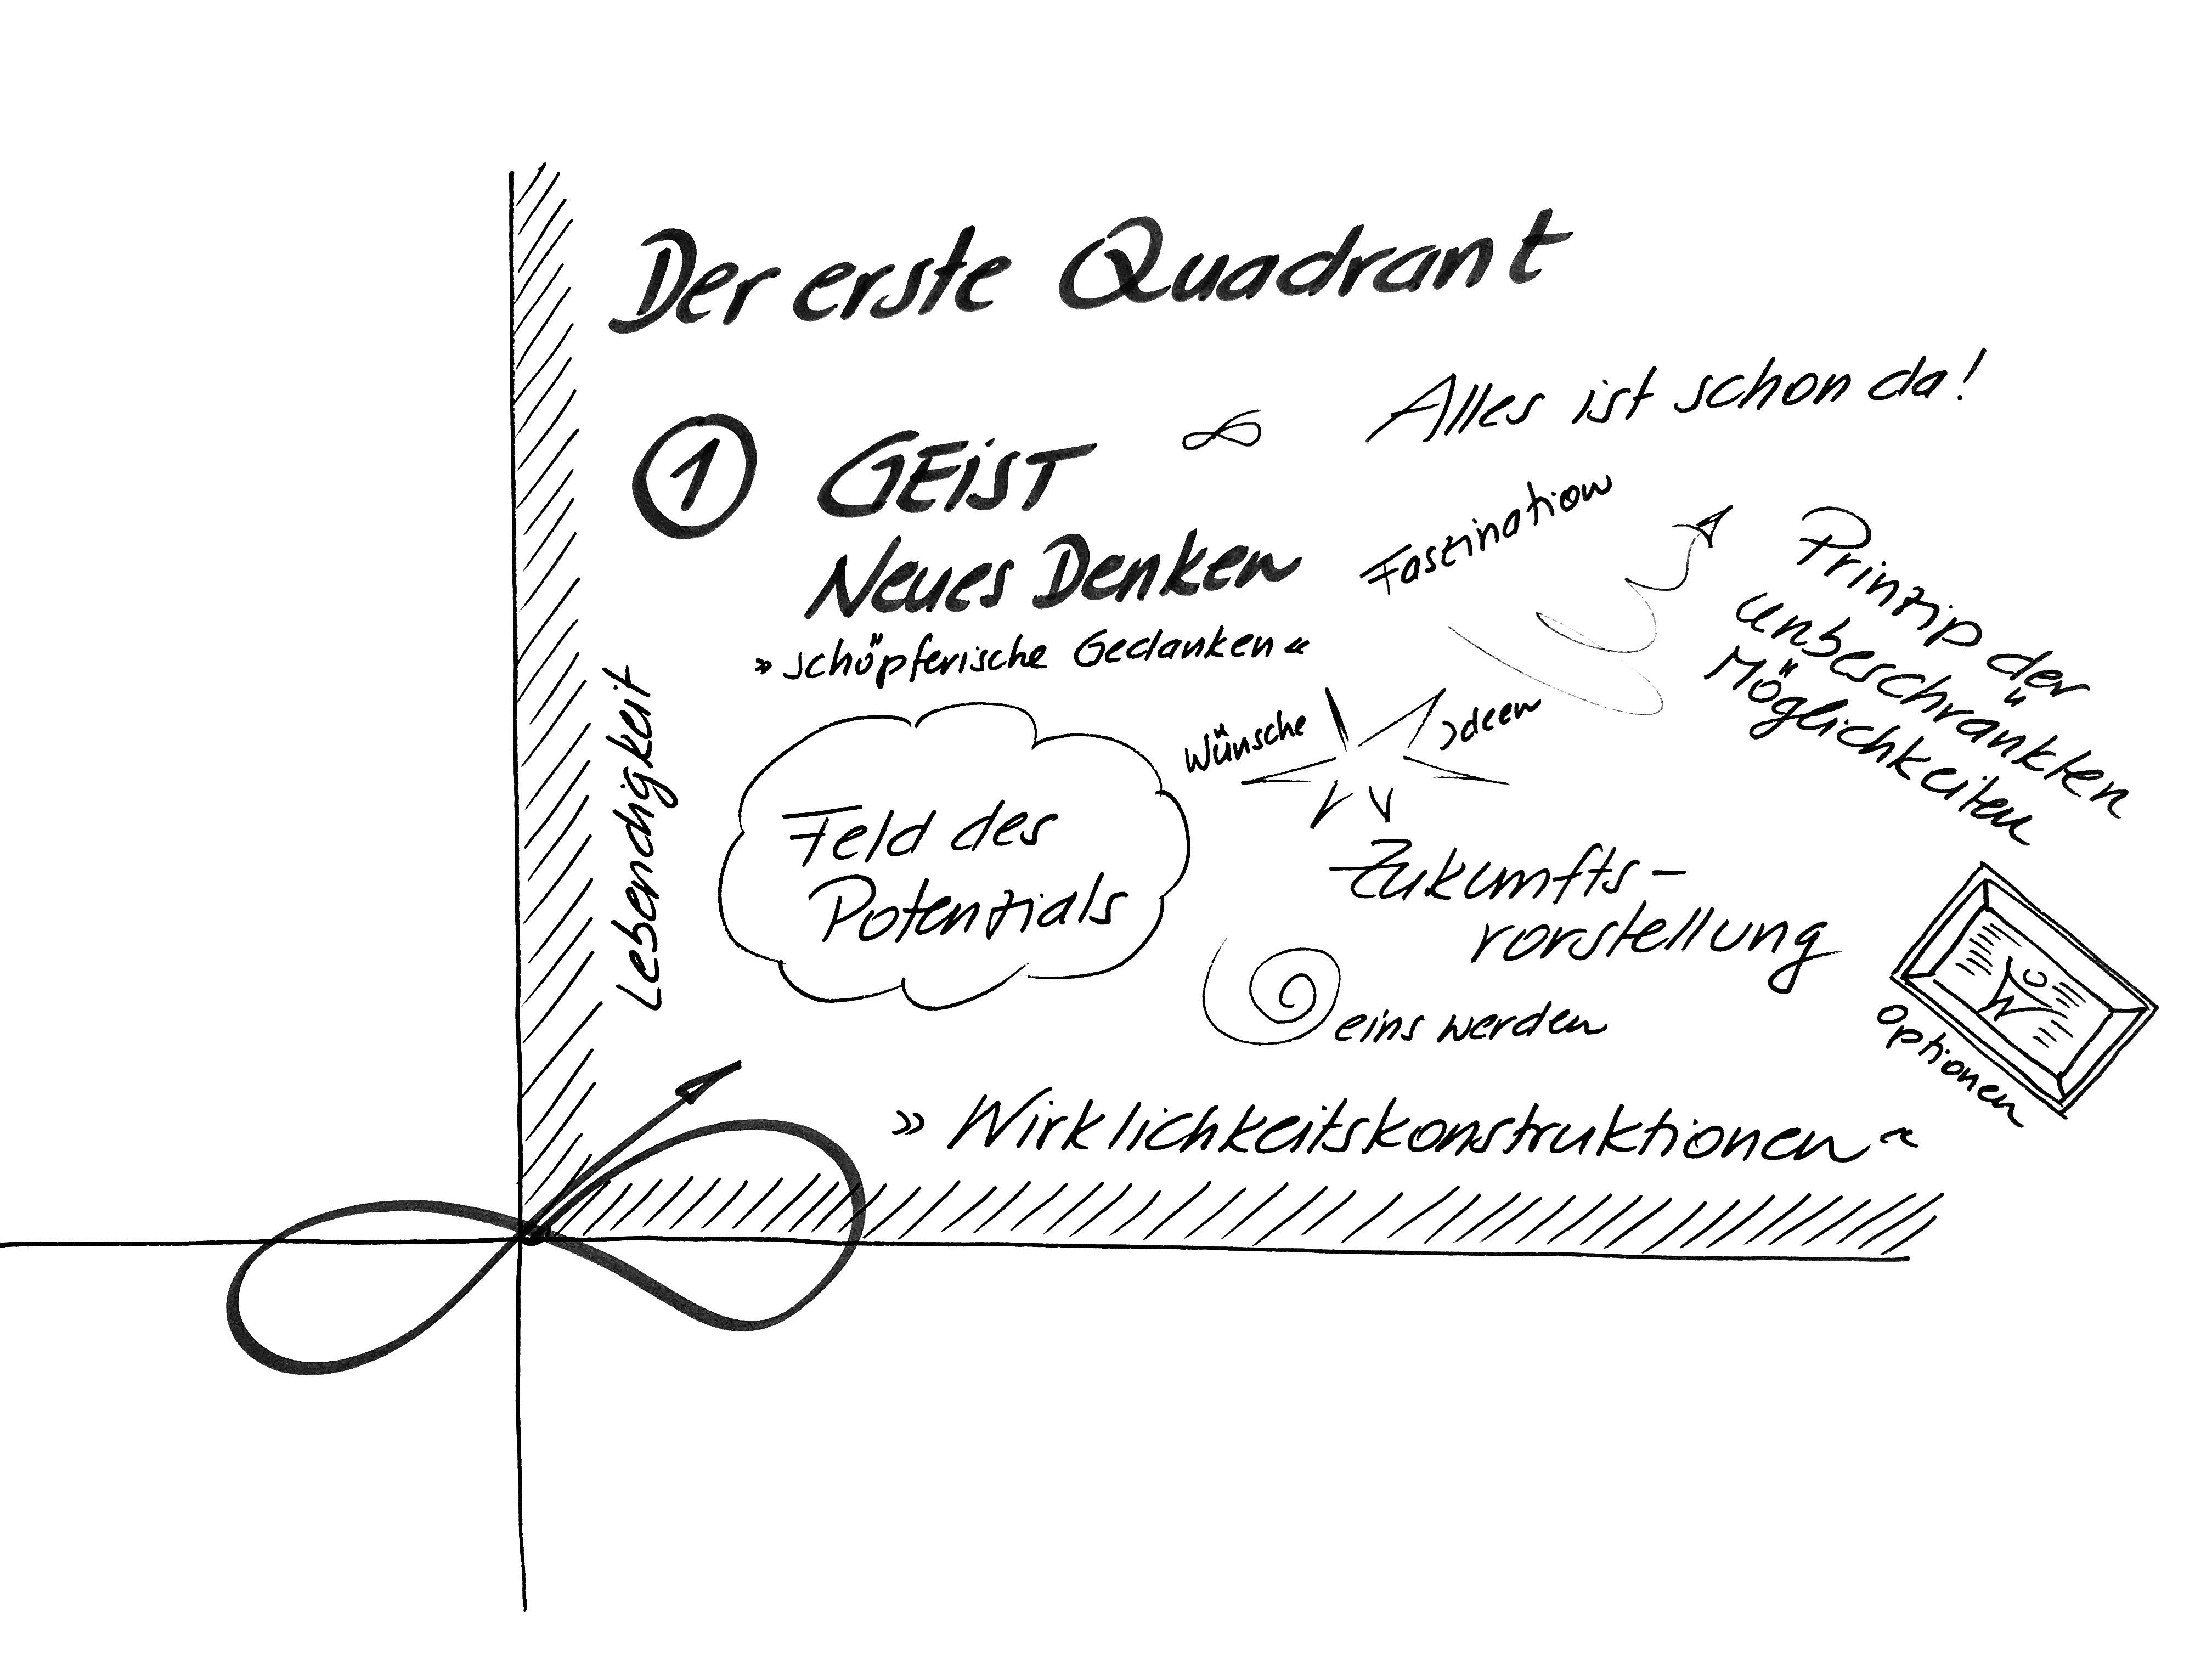 Der erste Quadrant
Alles ist schon da!
1 GEIST
Neues Denken
Faszination
»schöpferische Gedanken«
Prinzip der
unbeschränkten
Möglichkeiten
Lebendigkeit
Wünsche
Ideen
Feld des
Potenzials
Zukunfts-
vorstellung
eins werden
Optionen
»Wirklichkeitskonstruktionen«